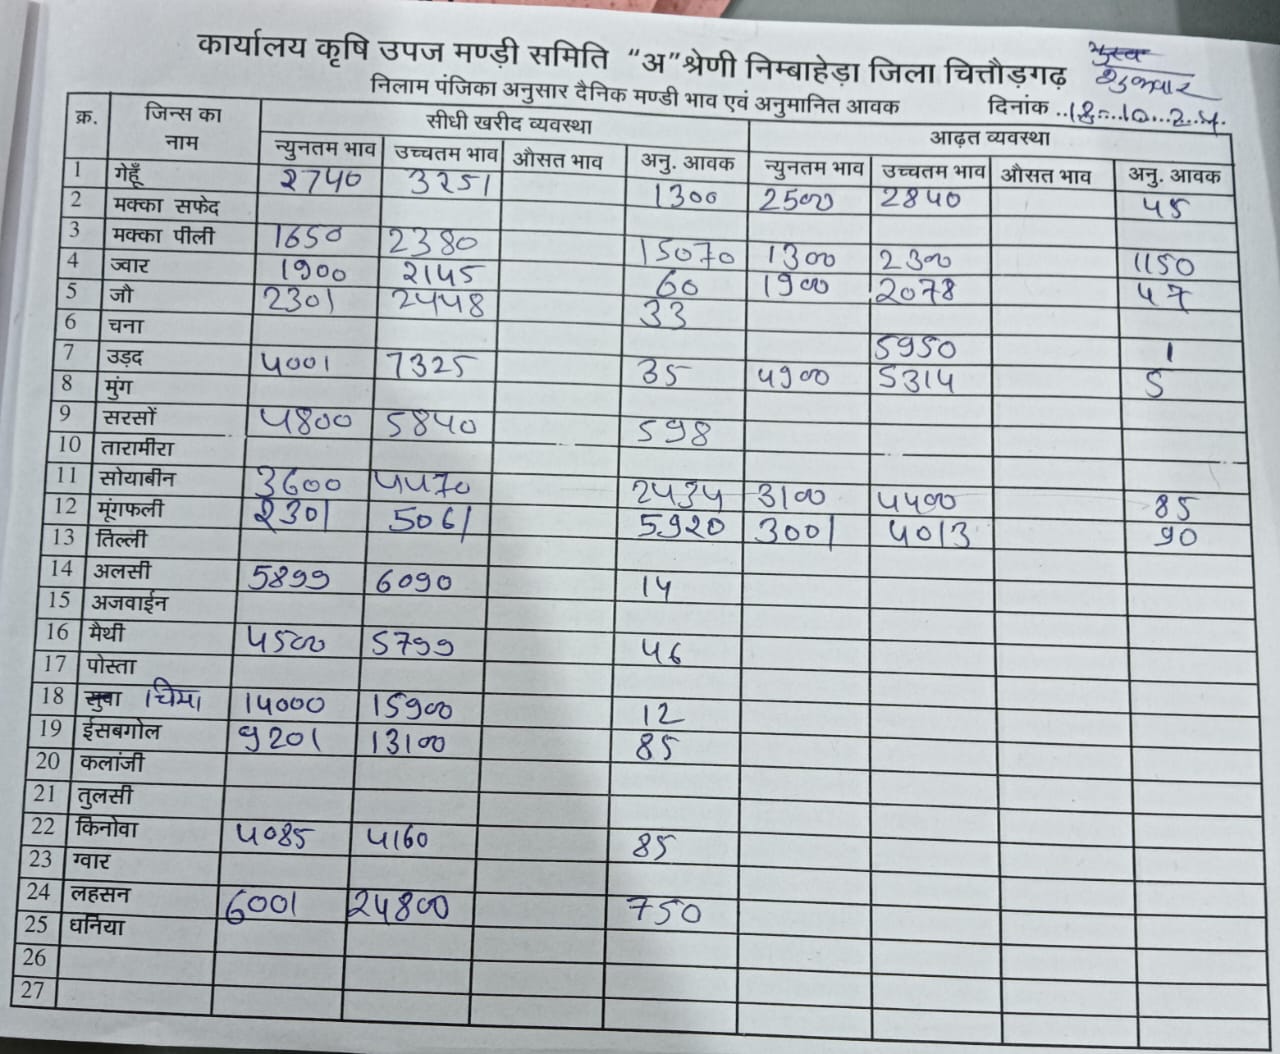 कार्यालय कृषि उपज मण्डी समिति "अ" श्रेणी निम्बाहेड़ा जिला चित्तौड़गढ़
शुक्रवार
निलाम पंजिका अनुसार दैनिक मण्डी भाव एवं अनुमानित आवक दिनांक 18-10-24
क्र. जिन्स का नाम सीधी खरीद व्यवस्था आढ़त व्यवस्था
न्युनतम भाव उच्चतम भाव औसत भाव अनु. आवक न्युनतम भाव उच्चतम भाव औसत भाव अनु. आवक
1 गेहूँ 2740 3251 1300 2500 2840 45
2 मक्का सफेद
3 मक्का पीली 1650 2380 15070 1300 2300 1150
4 ज्वार 1900 2145 60 1900 2078 47
5 जौ 2301 2448 33
6 चना 5950 1
7 उड़द 4001 7325 35 4900 5314 5
8 मुंग
9 सरसों 4800 5840 598
10 तारामीरा
11 सोयाबीन 3600 4470 2434 3100 4400 85
12 मूंगफली 2301 5061 5920 3001 4013 90
13 तिल्ली
14 अलसी 5899 6090 14
15 अजवाईन
16 मैथी 4500 5799 46
17 पोस्ता
18 सुवा चिया 14000 15900 12
19 ईसबगोल 9201 13100 85
20 कलांजी
21 तुलसी
22 किनोवा 4085 4160 85
23 ग्वार
24 लहसन 6001 24800 750
25 धनिया
26
27